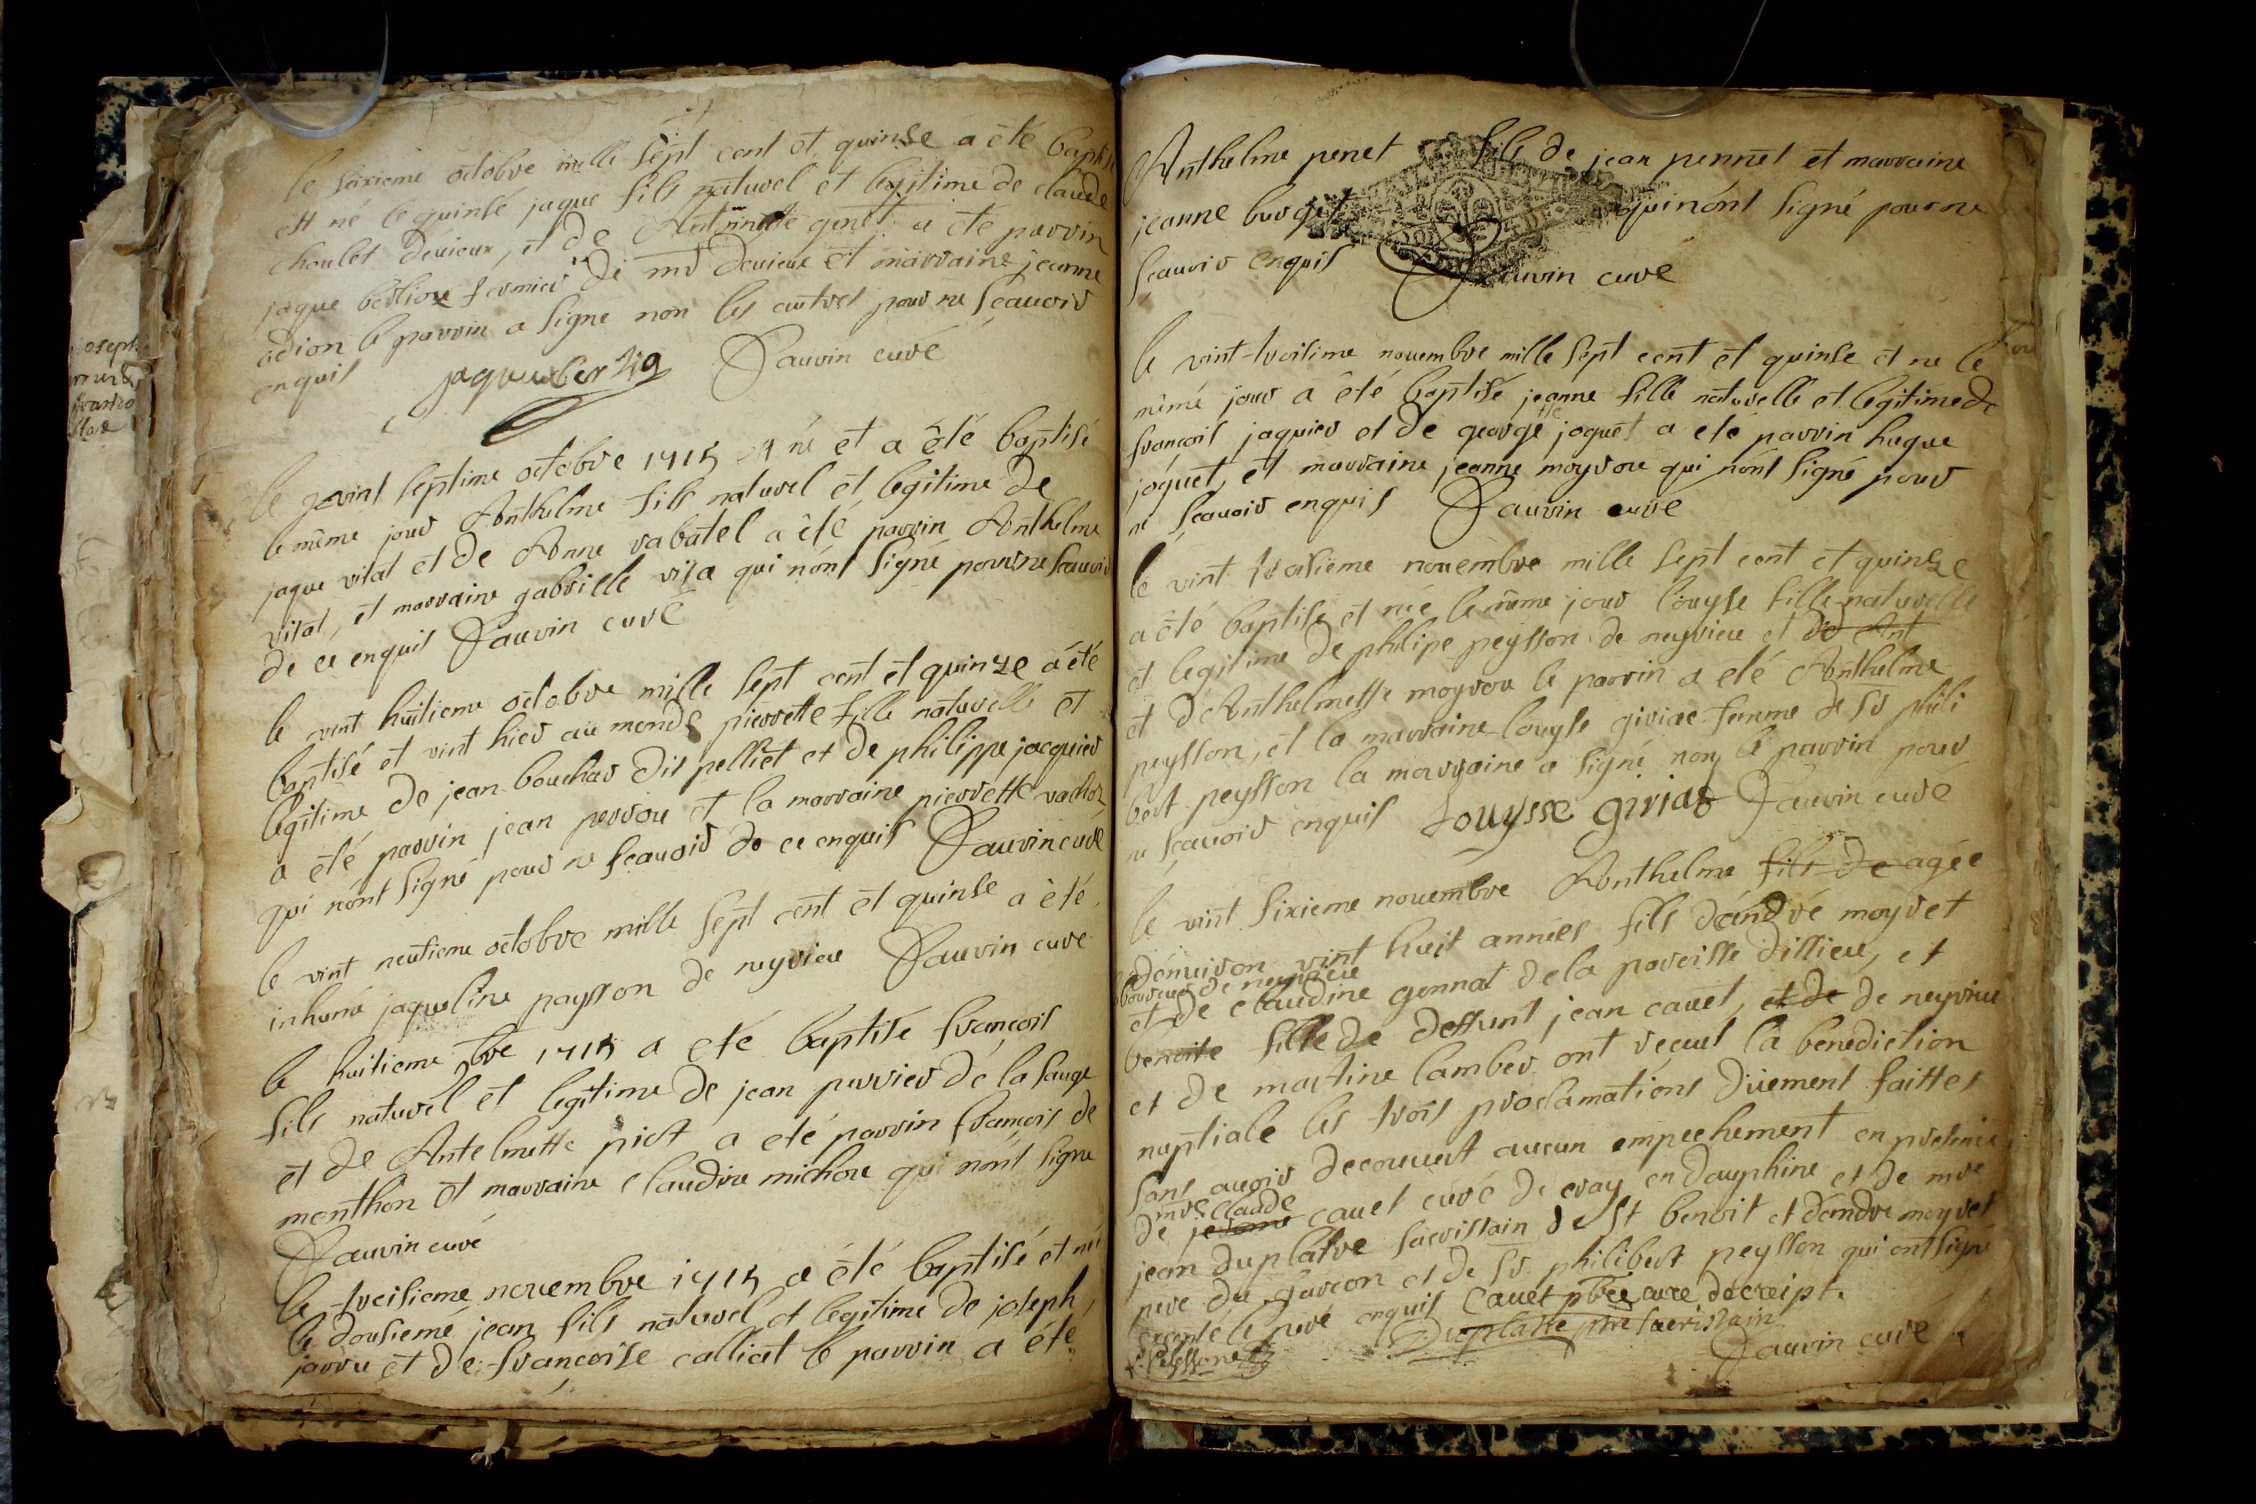 le seixieme octobre mille sept cent et quinse a été baptisé
est né le quinsé jaque fils naturel et legitime de claude
choulet deuieux, et de Antoinette genet a été parrin
jaque bertion fermier de mr deuieux et marraine jeanne
odion le parrin a signe non les autres pour ne scauoir
enquis jaqueuber tio Dauvin curé
le vint septime octobre 1715 est né et a été baptisé
le même jour Anthelme fils naturel et legitime de
jaque vital et de Anne rabatel a été parrin Anthelme
vital, et marraine gabrielle vita qui n'ont signé pour ne scauoir
de ce enquis Dauvin curé
le vint huitieme octobre mille sept cent et quinze a été
baptisé et vint hier au monde pierrette fille naturelle et
legitime de jean bouchar dit pelliet et de philippe jacquier
a été parrin jean perrou et la marraine pierrette vachor
qui n'ont signé pour ne scauoir de ce enquis Dauvin curé
le vint neufieme octobre mille sept cent et quinse a été
inhumé jaqueline paysson de neyrieu Dauvin curé
le huitieme 9bre 1715 a eté baptisé francois
fils naturel et legitime de jean perrier de la sauge
et de Antelmette piot a eté parrin francois de
monthon et marraine claudine michou qui n'ont signe
Dauvin curé
le treisieme nouembre 1715 a été baptisé et né
le dousieme jean fils naturel et legitime de joseph
jarru et de francoise calliat le parrin a été
Anthelme penet fils de jean pennet et marraine
jeanne burget qui n'ont signé pour ne
scauoir enquis Dauvin curé
le vint-troisime nouembre mille sept cent et quinse et ne le
même jour a été baptisé jeanne fille naturelle et legitime de
francois jaquier et de george tte joquet a eté parrin hugue
joquet, et marraine jeanne moyrou qui n'ont signé pour
ne scauoir enquis Dauvin curé
le vint troisieme nouembre mille sept cent et quinse
a été baptise et née le même jour louyse fille naturelle
et legitime de philipe peysson de neyrieu et de Ant
et de Anthelmette moyrou le parrin a eté Anthelme
peysson, et la marraine louyse giriat femme de sr phili
bert peysson la marraine a signé non le parrin pour
ne scauoir enquis Louysse giriat Dauvin curé
le vint sixieme nouembre Anthelme fils de agée
denuiron vint huit années fils d'andré moyret
laboureur de neyrieu
et de claudine gonnat de la paroisse dillieu, et
benoite fille de deffunt jean cauet, et de de neyrieu
et de martine lamber ont receut la benediction
nuptiale les trois proclamations düement faittes
sans auoir decouuert aucun empechement en presence
mre claude
de jerome cauet curé de cray en dauphine et de mre
jean duplatre sacristain de st benoit et d'andre moyret
pere du garcon et de sr philibert peysson qui ont signé
excepté le peré enquis Cauet pbre cure decreipt.
Duplatre ptre sacristain
Peysson Dauvin curé